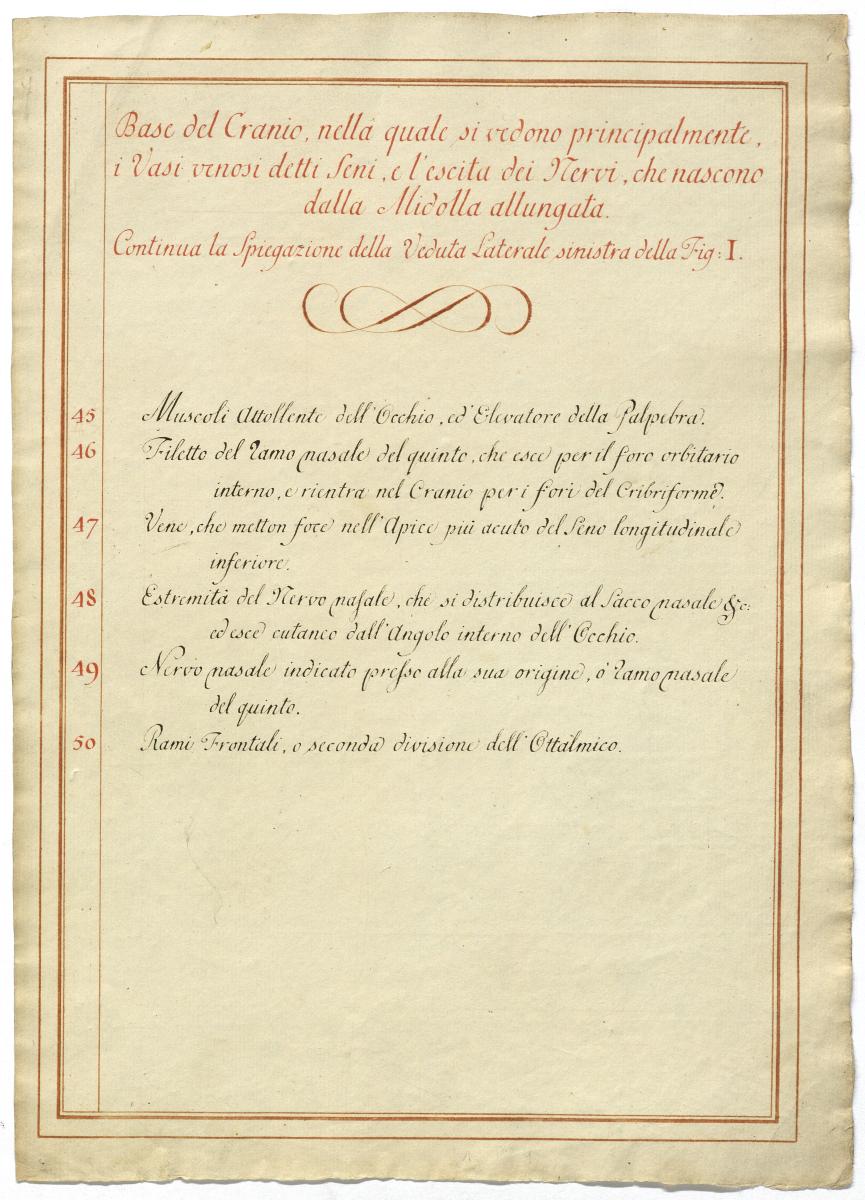 Base del Cranio, nella quale si vedono principalmente,
i Vasi venosi detti Seni, e l'escita dei Nervi, che nascono
dalla Midolla allungata.
Continua la Spiegazione della Veduta Laterale sinistra della Fig: I.
45 Muscoli Attollente dell'Occhio, ed' Elevatore della Palpebra.
46 Filetto del Ramo nasale del quinto, che esce per il foro orbitario
interno, e rientra nel Cranio per i fori del Cribriforme.
47 Vene, che metton foce nell'Apice più acuto del Seno longitudinale
inferiore.
48 Estremità del Nervo naſale, che si distribuisce al Sacco nasale &c:
ed esce cutaneo dall'Angolo interno dell'Occhio.
49 Nervo nasale indicato preſso alla sua origine, o' Ramo nasale
del quinto.
50 Rami Frontali, o seconda divisione dell'Ottalmico.